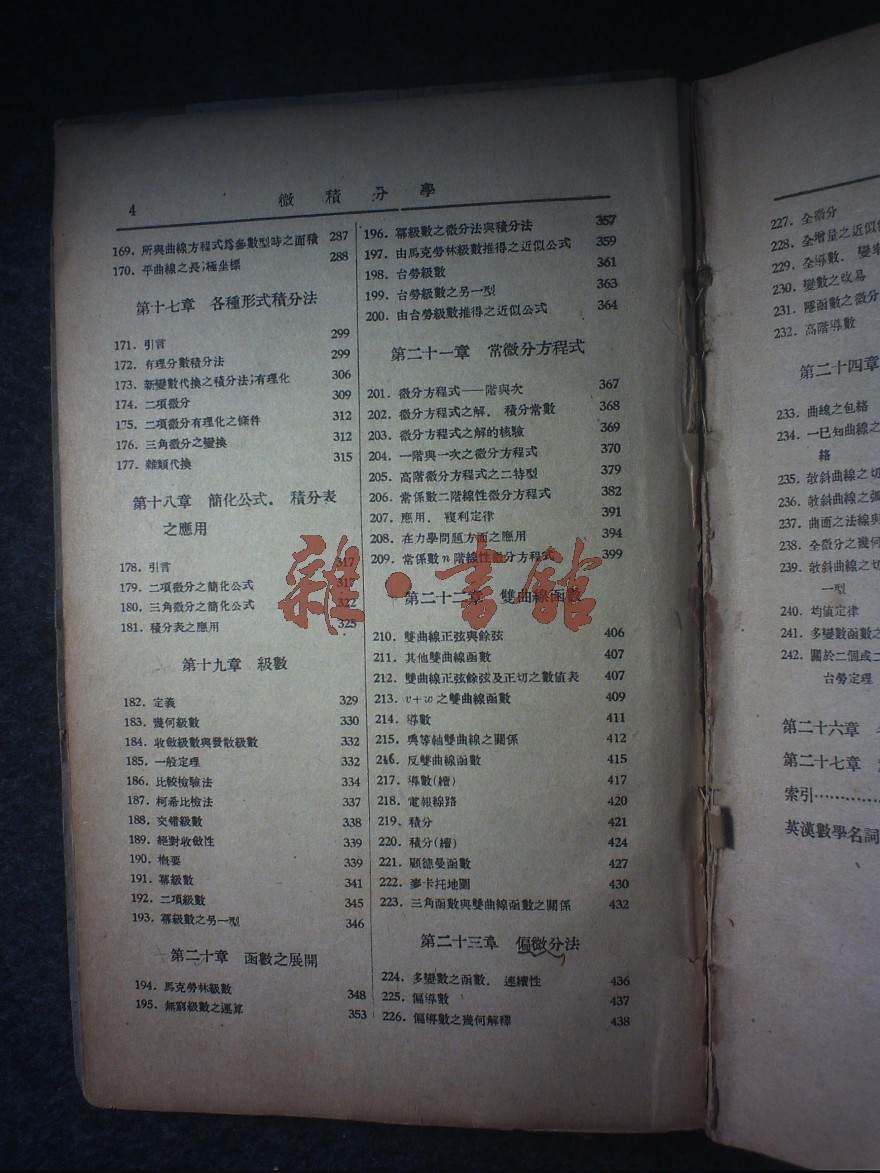 4
微積分學
169. 所與曲線方程式爲參數型時之面積 287
170. 平曲線之長;極坐標 288
第十七章 各種形式積分法
171. 引言 299
172. 有理分數積分法 299
173. 新變數代換之積分法;有理化 306
174. 二項微分 309
175. 二項微分有理化之條件 312
176. 三角微分之變換 312
177. 雜類代換 315
第十八章 簡化公式. 積分表
之應用
178. 引言 317
179. 二項微分之簡化公式 317
180. 三角微分之簡化公式 322
181. 積分表之應用 325
第十九章 級數
182. 定義 329
183. 幾何級數 330
184. 收斂級數與發散級數 332
185. 一般定理 332
186. 比較檢驗法 334
187. 柯希比檢法 337
188. 交錯級數 338
189. 絕對收斂性 339
190. 概要 339
191. 冪級數 341
192. 二項級數 345
193. 冪級數之另一型 346
第二十章 函數之展開
194. 馬克勞林級數 348
195. 無窮級數之運算 353
196. 冪級數之微分法與積分法 357
197. 由馬克勞林級數推得之近似公式 359
198. 台勞級數 361
199. 台勞級數之另一型 363
200. 由台勞級數推得之近似公式 364
第二十一章 常微分方程式
201. 微分方程式——階與次 367
202. 微分方程式之解. 積分常數 368
203. 微分方程式之解的核驗 369
204. 一階與一次之微分方程式 370
205. 高階微分方程式之二特型 379
206. 常係數二階線性微分方程式 382
207. 應用. 複利定律 391
208. 在力學問題方面之應用 394
209. 常係數n階線性微分方程式 399
第二十二章 雙曲線函數
210. 雙曲線正弦與餘弦 406
211. 其他雙曲線函數 407
212. 雙曲線正弦餘弦及正切之數值表 407
213. v+w之雙曲線函數 409
214. 導數 411
215. 與等軸雙曲線之關係 412
216. 反雙曲線函數 415
217. 導數(續) 417
218. 電報線路 420
219. 積分 421
220. 積分(續) 424
221. 顧德曼函數 427
222. 麥卡托地圖 430
223. 三角函數與雙曲線函數之關係 432
第二十三章 偏微分法
224. 多變數之函數. 連續性 436
225. 偏導數 437
226. 偏導數之幾何解釋 438
雜·書館
227. 全微分
228. 全增量之近似
229. 全導數. 變率
230. 變數之改易
231. 隱函數之微分
232. 高階導數
第二十四章
233. 曲線之包絡
234. 一已知曲線之
絡
235. 欹斜曲線之切
236. 欹斜曲線之弧
237. 曲面之法線與
238. 全微分之幾何
239. 欹斜曲線之切
一型
240. 均值定律
241. 多變數函數之
242. 關於二個或二
台勞定理
第二十六章
第二十七章
索引
英漢數學名詞